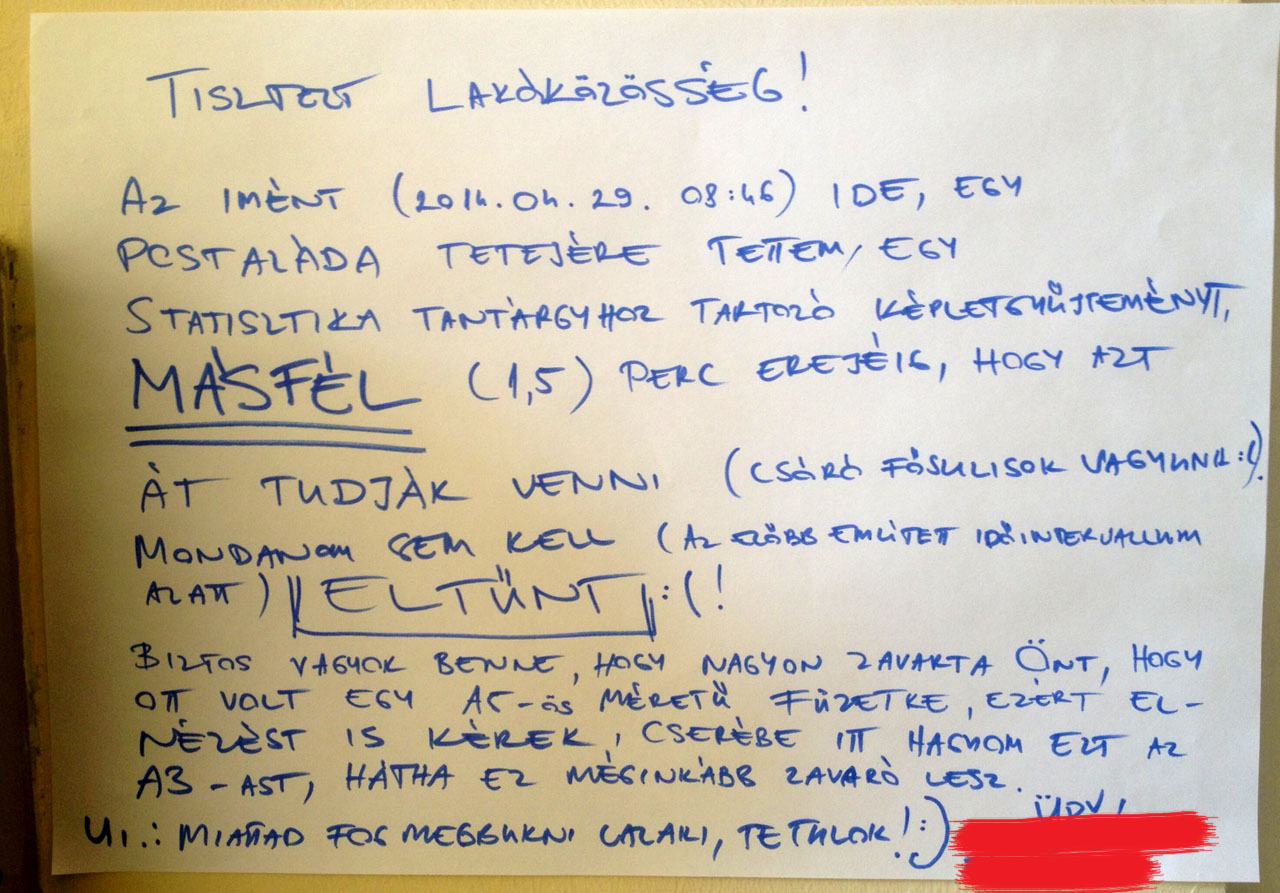 TISZTELT LAKÓKÖZÖSSÉG!
AZ IMÉNT (2014.04.29. 08:46) IDE, EGY
POSTALÁDA TETEJÉRE TETTEM, EGY
STATISZTIKA TANTÁRGYHOZ TARTOZÓ KÉPLETGYŰJTEMÉNYT,
MÁSFÉL (1,5) PERC EREJÉIG, HOGY AZT
ÁT TUDJÁK VENNI (CSÓRÓ FŐSULISOK VAGYUNK :().
MONDANOM SEM KELL (AZ ELŐBB EMLÍTETT IDŐINTERVALLUM
ALATT) ELTŰNT :(!
BIZTOS VAGYOK BENNE, HOGY NAGYON ZAVARTA ÖNT, HOGY
OTT VOLT EGY A5-ÖS MÉRETŰ FÜZETKE, EZÉRT EL-
NÉZÉST IS KÉREK, CSERÉBE ITT HAGYOM EZT AZ
A3-AST, HÁTHA EZ MÉGINKÁBB ZAVARÓ LESZ.
ÜDV,
UI.: MIATTAD FOG MEGBUKNI VALAKI, TE TULOK! :)